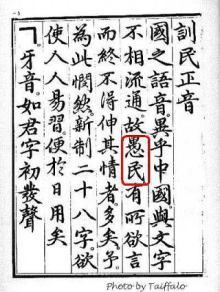 訓民正音
國之語音。異乎中國與文字
不相流通。故愚民有所欲言
而終不得伸其情者。多矣。予
為此憫然。新制二十八字。欲
使人人易習。便於日用矣
ㄱ。牙音。如君字初發聲
Photo by Taiffalo